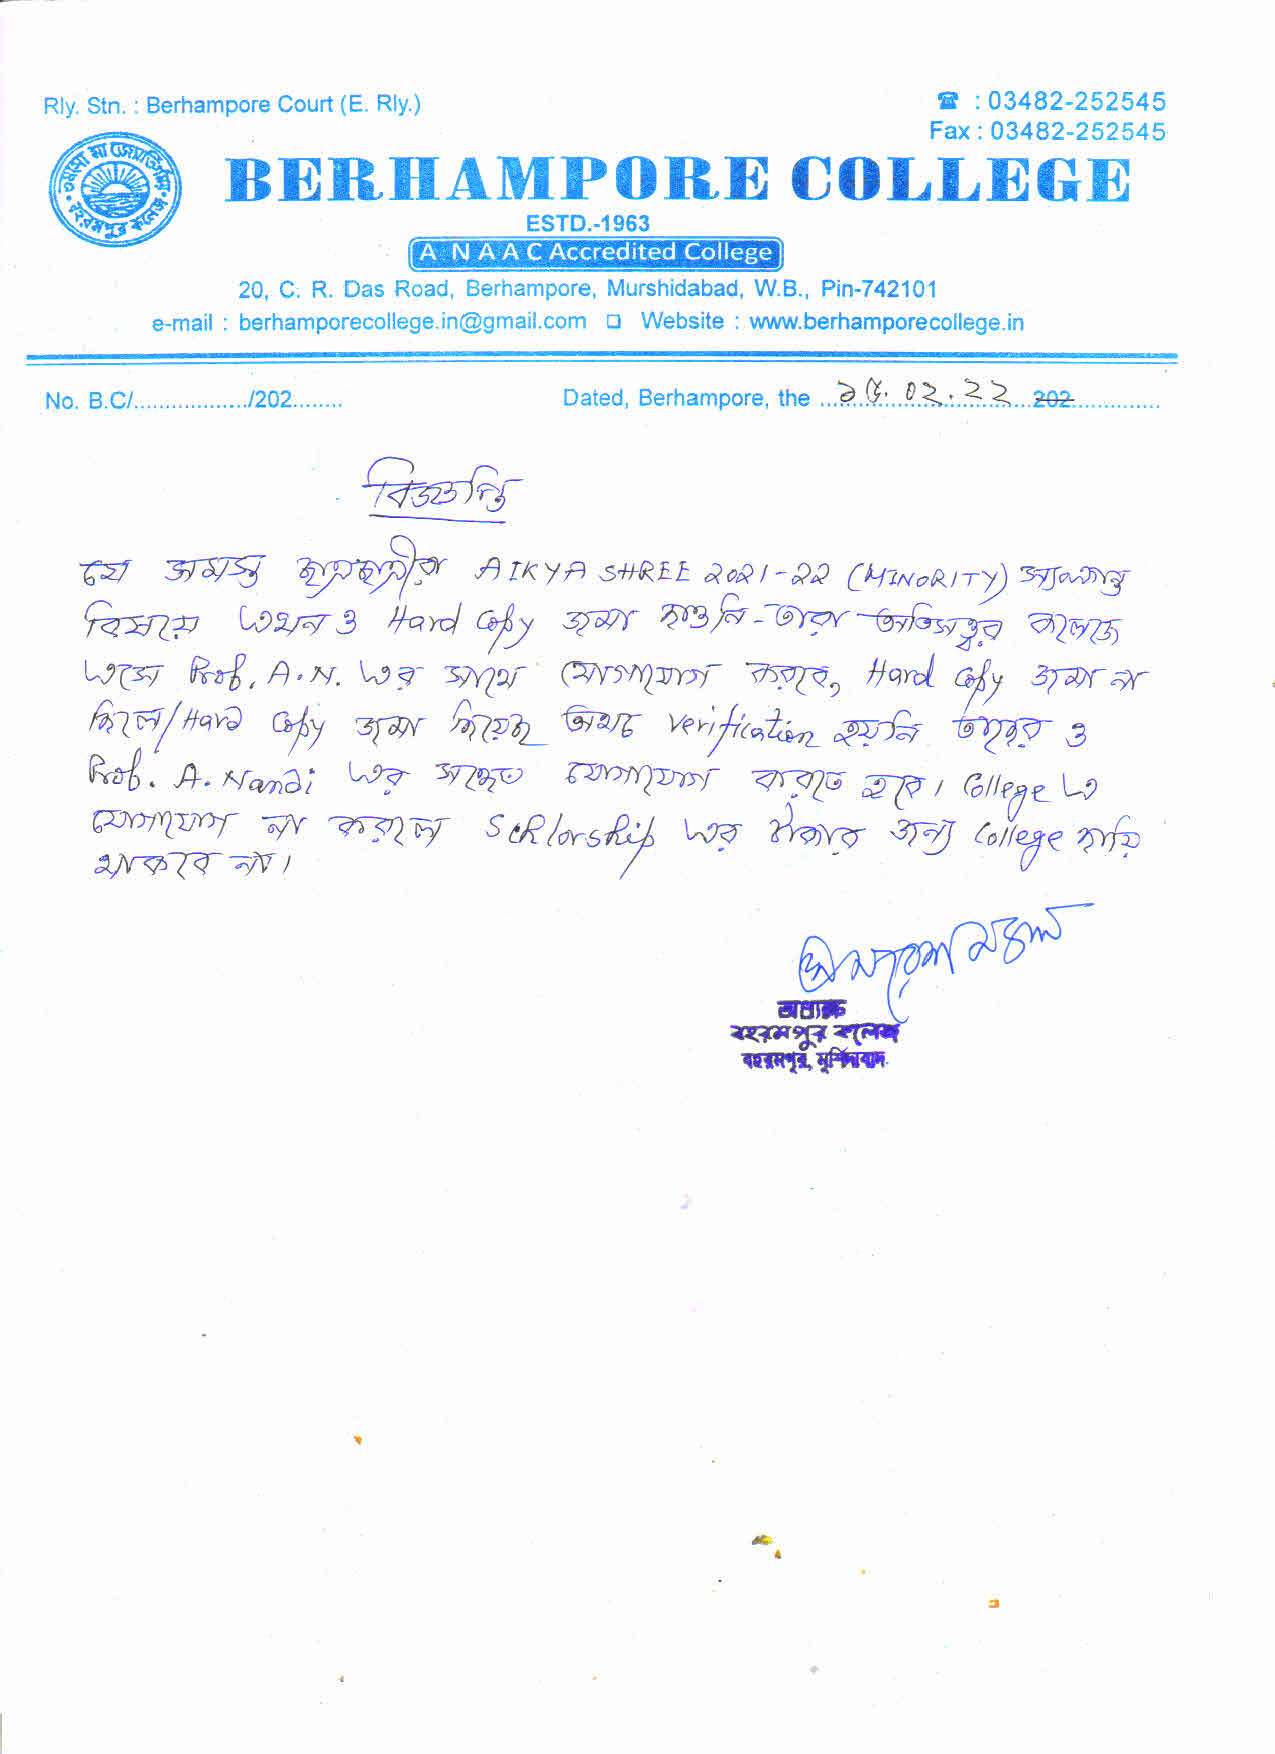 Rly. Stn. : Berhampore Court (E. Rly.)
☎ : 03482-252545
Fax : 03482-252545
তমসো মা জ্যোতির্গময় বহরমপুর কলেজ
BERHAMPORE COLLEGE
ESTD.-1963
A NAAC Accredited College
20, C. R. Das Road, Berhampore, Murshidabad, W.B., Pin-742101
e-mail : berhamporecollege.in@gmail.com ❑ Website : www.berhamporecollege.in
No. B.C/................../202........
Dated, Berhampore, the ...১৫.০২.২২...202..............
বিজ্ঞপ্তি
যে সমস্ত ছাত্রছাত্রীর AIKYASHREE 2021-22 (MINORITY) সংক্রান্ত
বিষয়ে এখনও Hard Copy জমা দাওনি - তারা অতিসত্ত্বর কলেজে
এসে Prof. A.N. এর সাথে যোগাযোগ করবে, Hard Copy জমা না
দিলে/Hard Copy জমা দিয়েছ অথচ verification হয়নি তাদের ও
Prof. A. Nandi এর সঙ্গে যোগাযোগ করতে হবে। College এ
যোগাযোগ না করলে Scholorship এর টাকার জন্য College দায়ি
থাকবে না।
অধ্যক্ষ
বহরমপুর কলেজ
বহরমপুর, মুর্শিদাবাদ